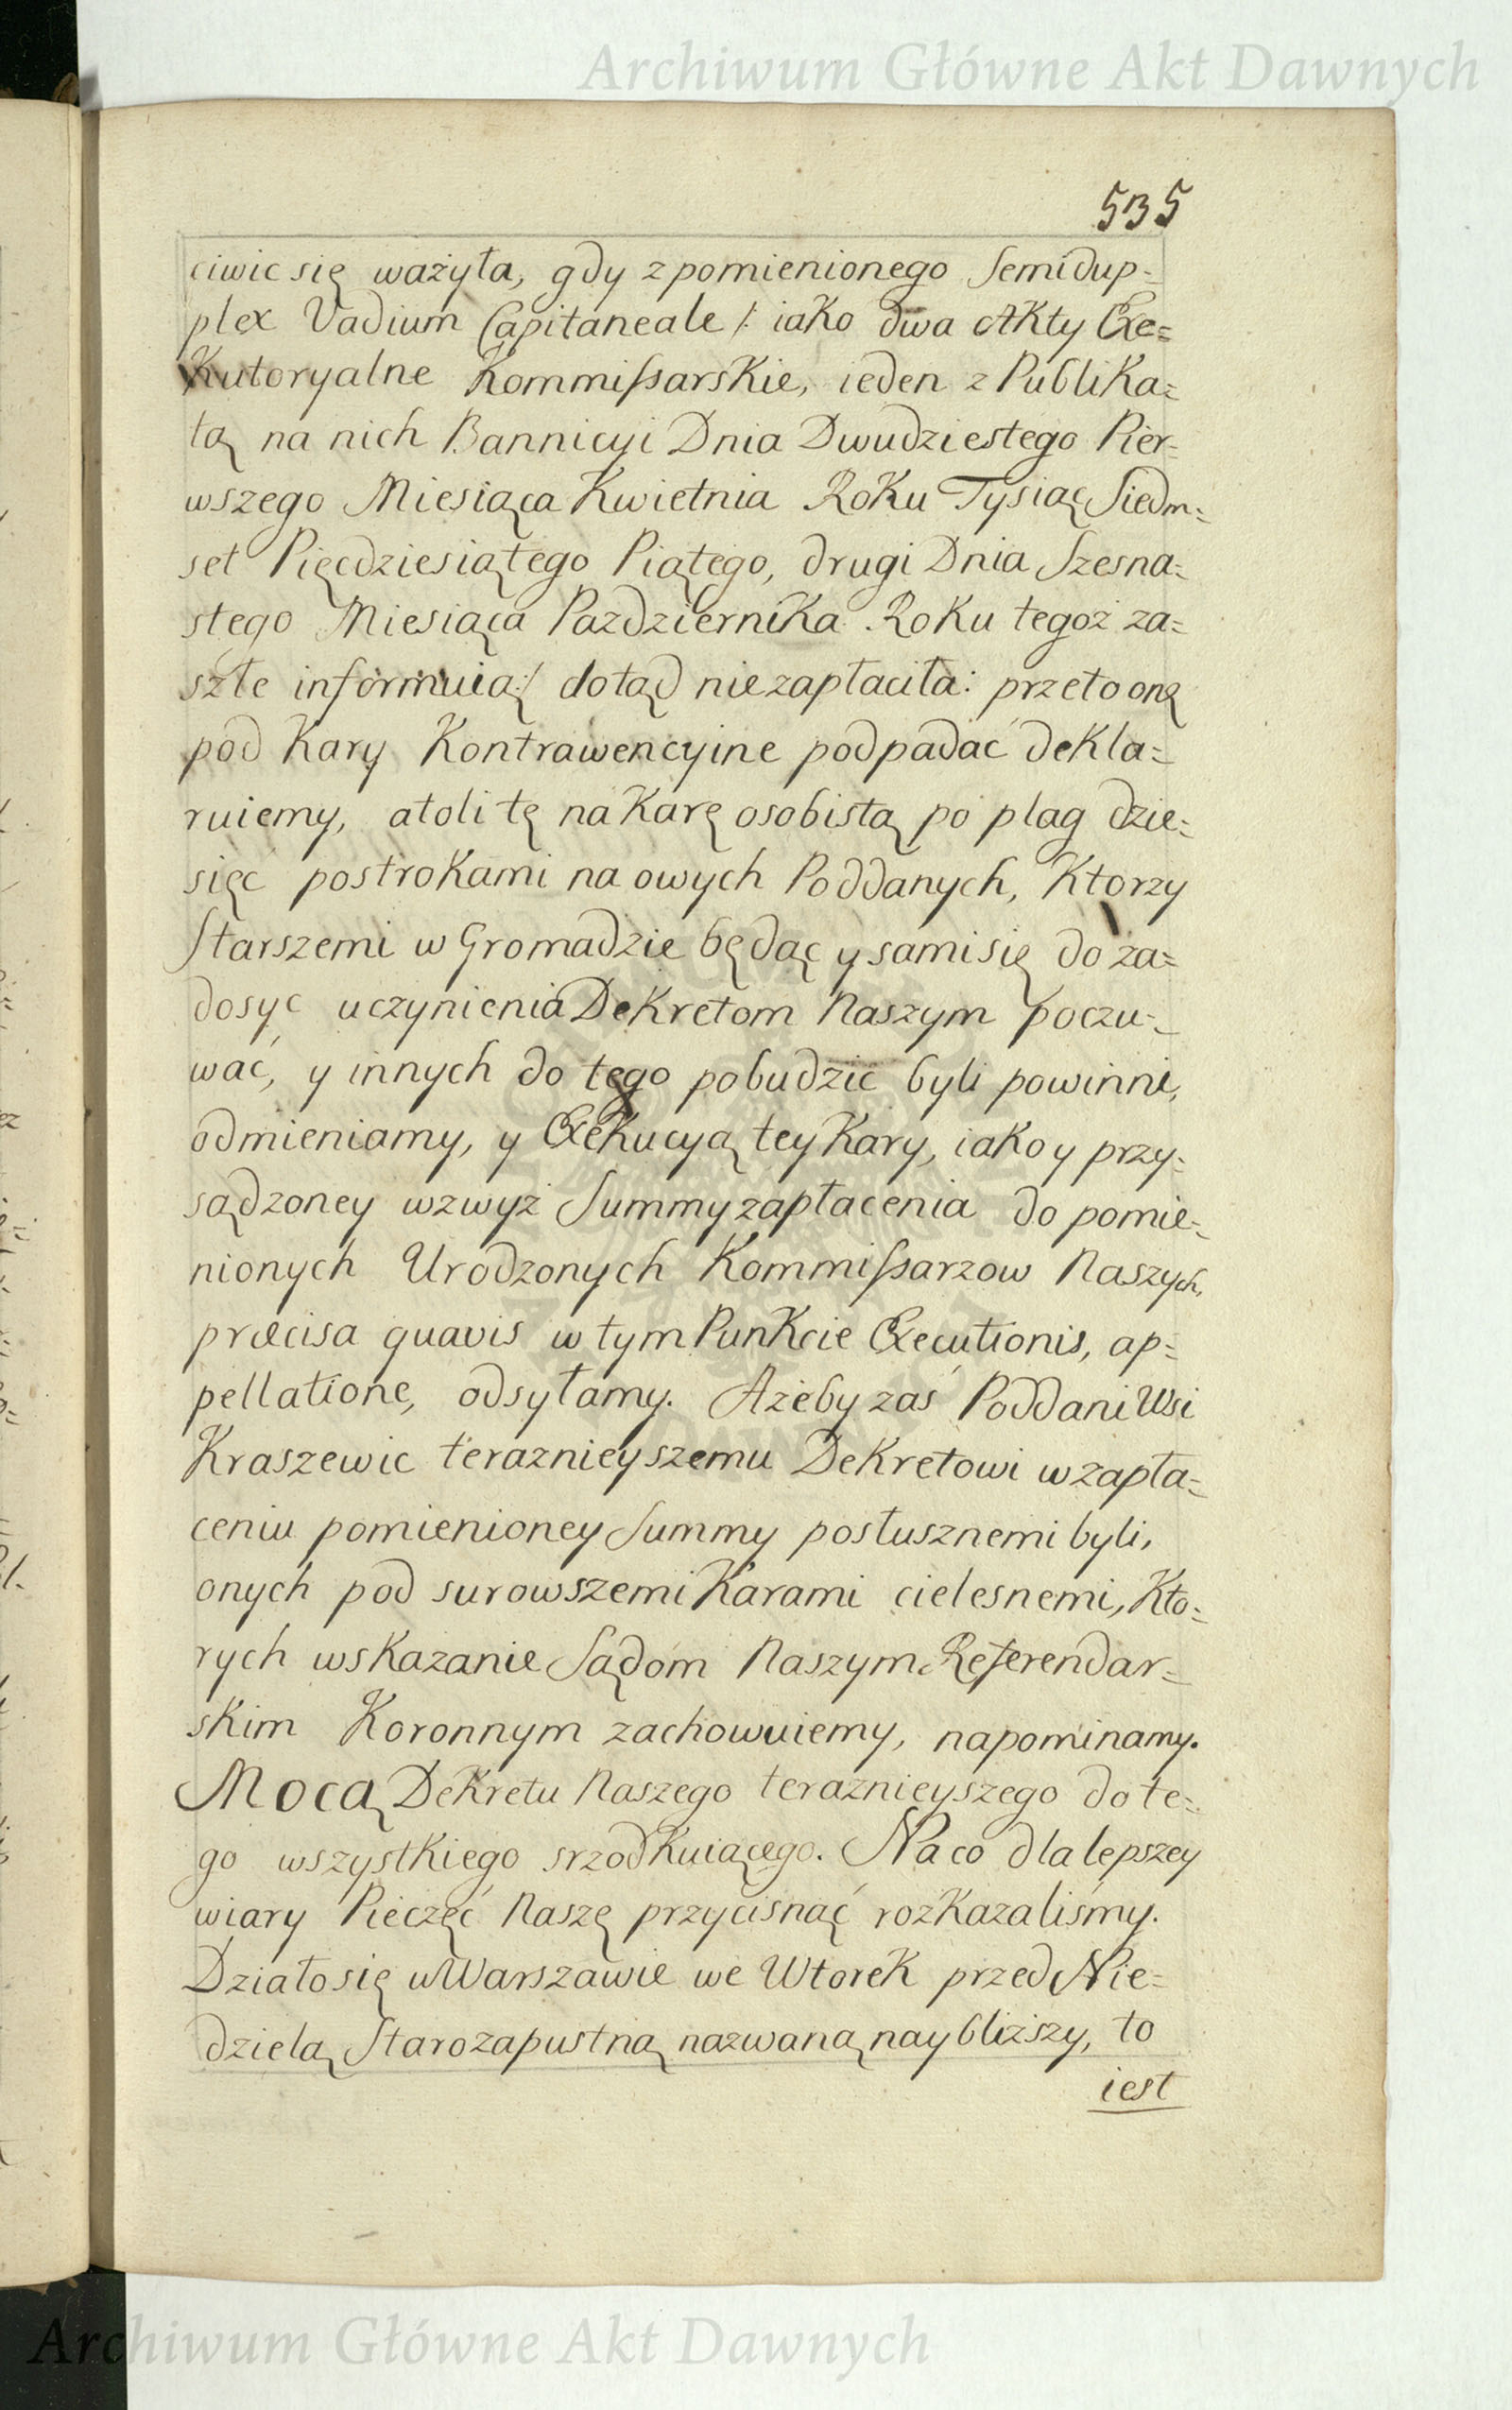 Archiwum Główne Akt Dawnych
535
ciwic się ważyła, gdy z pomienionego Semidup=
plex Vadium Capitaneale /: iako dwa Akty Exe=
Kutoryalne Kommissarskie, ieden z Publika=
tą na nich Bannicyi Dnia Dwudziestego Pier=
wszego Miesiąca Kwietnia Roku Tysiąc Siedm=
set Pięcdziesiątego Piątego, drugi Dnia Szesna=
stego Miesiąca Pazdziernika Roku tegoż za=
szłe informuią:/ dotąd niezapłaciła: przeto onę
pod Kary Kontrawencyine podpadać dekla=
ruiemy, atoli tę na Karę osobistą po plag dzie=
sięć postrokami na owych Poddanych, Ktorzy
Starszemi w Gromadzie będąc y sami się do za=
dosyc uczynienia Dekretom Naszym poczu=
wać, y innych do tego pobudzić byli powinni,
odmieniamy, y Exekucyą tey Kary, iako y przy=
sądzoney wzwyż Summy zapłacenia do pomie=
nionych Urodzonych Kommissarzow Naszych,
præcisa quavis w tym Punkcie Executionis, ap=
pellatione, odsyłamy. Ażeby zaś Poddani Wsi
Kraszewic teraznieyszemu Dekretowi w zapła=
ceniu pomienioney Summy posłusznemi byli,
onych pod surowszemi Karami cielesnemi, Kto=
rych wskazanie Sądom Naszym Referendar=
skim Koronnym zachowuiemy, napominamy.
Mocą Dekretu Naszego teraznieyszego do te=
go wszystkiego srzodkuiącego. Na co dla lepszey
wiary Pieczęć Naszę przycisnąć rozkazaliśmy.
Działo się w Warszawie we Wtorek przed Nie=
dzielą Starozapustną nazwaną naybliższy, to
iest
Archiwum Główne Akt Dawnych